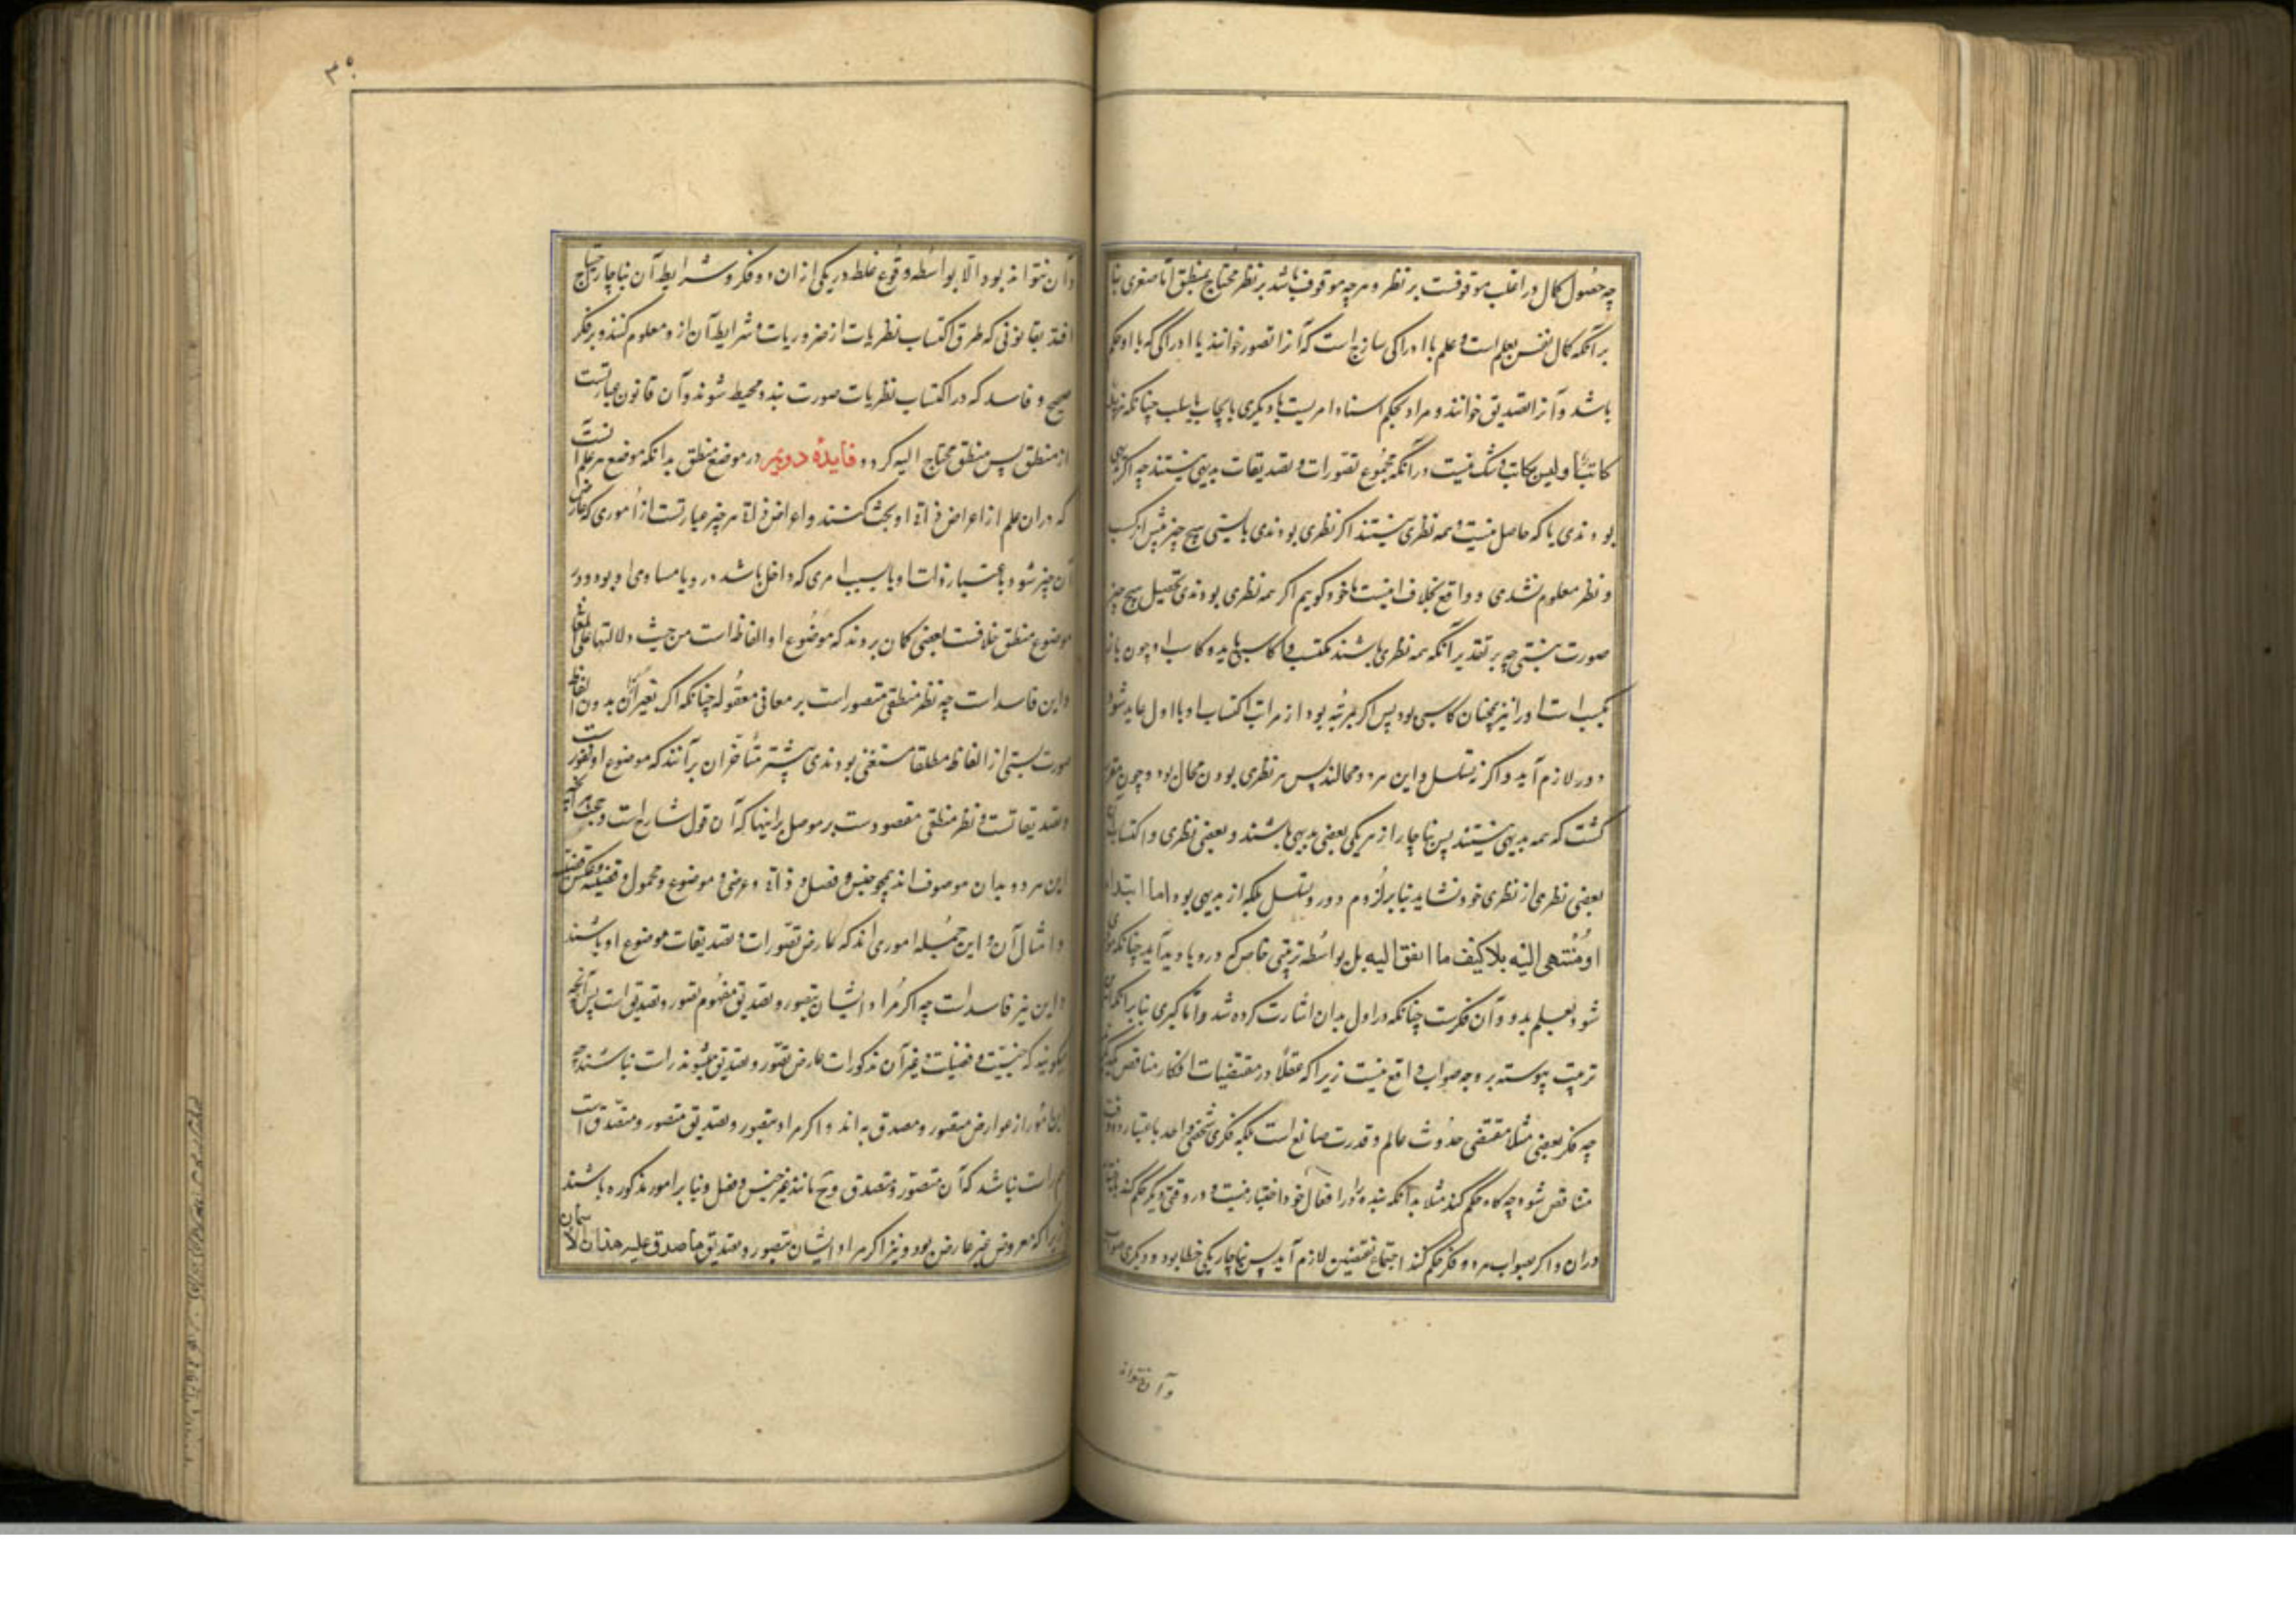 چه حصول کمال در اغلب موقوفست بر نظر و هرچه موقوف باشد بر نظر محتاج بمنطق اما صغری بنا
بر آنکه کمال نفس بعلم است و علم با ادراکی ساذج است که آنرا تصور خوانند یا ادراکی که با او حکم
باشد و آنرا تصدیق خوانند و مراد بحکم اسناد امریست با دیگری بایجاب یا بسلب چنانکه
کاتب و لیس بکاتب و شک نیست در آنکه مجموع تصورات و تصدیقات بدیهی نیستند چه اگر بدیهی
بودندی یا که حاصل نیست و همه نظری نیستند اگر نظری بودندی بایستی هیچ چیز پیش از کسب
و نظر معلوم نشدی و واقع بخلاف اینست یا خود گویم اگر همه نظری بودندی تحصیل هیچ چیز
صورت نبستی چه بر تقدیر آنکه همه نظری باشند مکتسب را کاسبی باید و کاسب او چون باز
بکسب است او را نیز همچنان کاسبی بود پس اگر بمرتبه بود از مراتب اکتساب او با اول عاید شود
دور لازم آید و اگر نه تسلسل و این هر دو محالند پس هر نظری بودن محال بود و چون مقرر
گشت که همه بدیهی نیستند پس ناچار از هر یکی بعضی بدیهی باشند و بعضی نظری و اکتساب
بعضی نظری از نظری خود نشاید بنا بر لزوم دور و تسلسل بلکه از بدیهی بود اما ابتداء
او منتهی الیه بلا کیف ما اتفق الیه بل بواسطه ترتیبی خاص که درو یا دید آید چنانکه
شود بعلم بدو و آن فکرست چنانکه در اول بدان اشارت کرده شد و اما کبری بنا بر آنکه
ترتیب پیوسته بر وجه صواب واقع نیست زیرا که عقلا در مقتضیات افکار مناقض یکدیگرند
چه فکر بعضی مثلا مقتضی حدوث عالم و قدرت صانع است بلکه فکر شخصی واحد باعتبار دو وقت
متناقض شود چه گاه حکم کند مثلا بدانکه بنده را در افعال خود اختیار نیست و در وقتی دیگر حکم کند
دران و اگر بصواب هر دو فکر حکم کند اجتماع نقیضین لازم آید پس ناچار یکی خطا بود و دیگری صواب
و آن نتواند
۳۰
و آن نتواند بود الا بواسطه وقوع غلط در یکی از ان دو فکر و شرایط آن بناچار احتیاج
افتد بقانونی که طرق اکتساب نظریات از ضروریات و شرایط آن ازو معلوم کنند و بر فکر
صحیح و فاسد که در اکتساب نظریات صورت بندد محیط شوند و آن قانون عبارتست
از منطق پس منطق محتاج الیه گردد فایدۀ دویم در موضع منطق بدانکه موضع هر علم آنست
که دران علم از اعراض ذاتی او بحث کنند و اعراض ذاتی هر چیز عبارتست از اموری که عارض
آن چیز شود باعتبار ذات او یا بسبب امری که داخل باشد درو یا مساوی او بود و در
موضوع منطق خلافست بعضی گمان بردند که موضوع او الفاظ است من حیث دلالتها علی المعانی
و این فاسد است چه نظر منطقی مقصور است بر معانی معقوله چنانکه اگر تعبیر ازان بدون الفاظ
صورت بستی از الفاظ مطلقا مستغنی بودندی بیشتر متاخران برآنند که موضوع او تصورات
و تصدیقاتست و نظر منطقی مقصودست بر موصل براینها که آن قول شارح است و حجت و آنچه
این هر دو بدان موصوف اند همچو جنس و فصل و ذاتی و عرضی و موضوع و محمول و قضیه و عکس قضیه
و امثال آن و این جمله اموری اند که عارض تصورات و تصدیقات موضوع او باشند
و این نیز فاسد است چه اگر مراد ایشان بتصور و تصدیق مفهوم تصور و تصدیق است پس آنچه
میگویند که جنسیت و فصلیت و غیر آن مذکورات عارض تصور و تصدیق میشوند راست نباشند چه
این امور از عوارض متصور و مصدق به اند و اگر مراد بتصور و تصدیق متصور و مصدق است
هم راست نباشد که آن متصور و مصدق و حجت مانند غیر جنس و فصل و بنا بر امور مذکوره باشند
زیرا که معروض غیر عارض بود و نیز اگر مراد ایشان بتصور و تصدیق ما صدق علیه هذان الاسمان